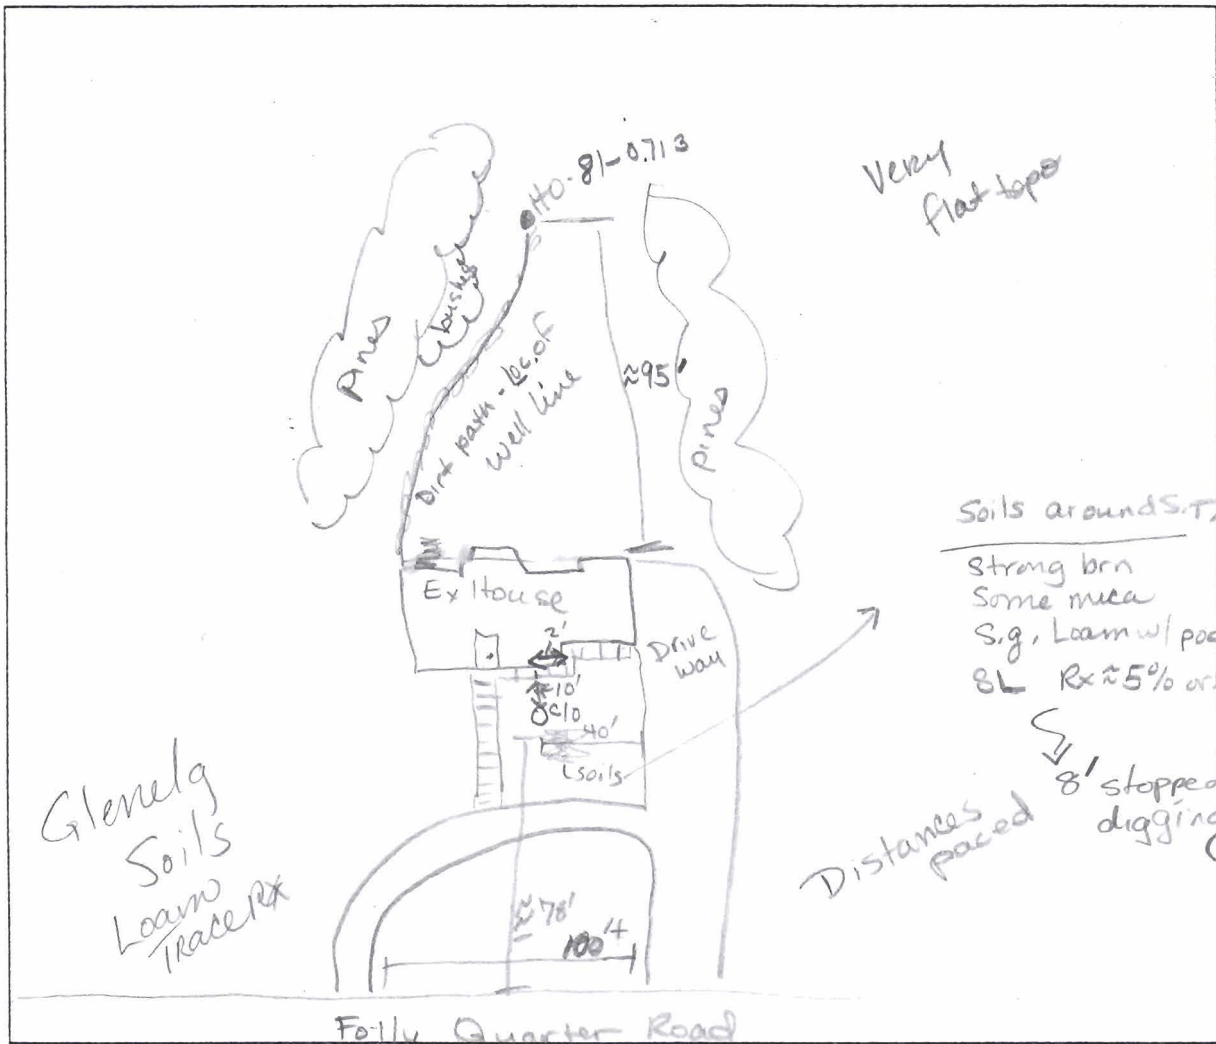 HO-81-0713
Very
flat topo
Pines
bushes
Dirt path - Loc. of
Well line
≈95'
pines
Soils around S.T.
Strong brn
Some mica
S.g. Loam w/
8L Rx ≈ 5% or
8' stopped
digging
Ex House
2'
Drive
way
10'
c/o
40'
soils
Glenelg
Soils
Loam
Trace Rx
Distances
paced
≈78'
100'±
Folly Quarter Road